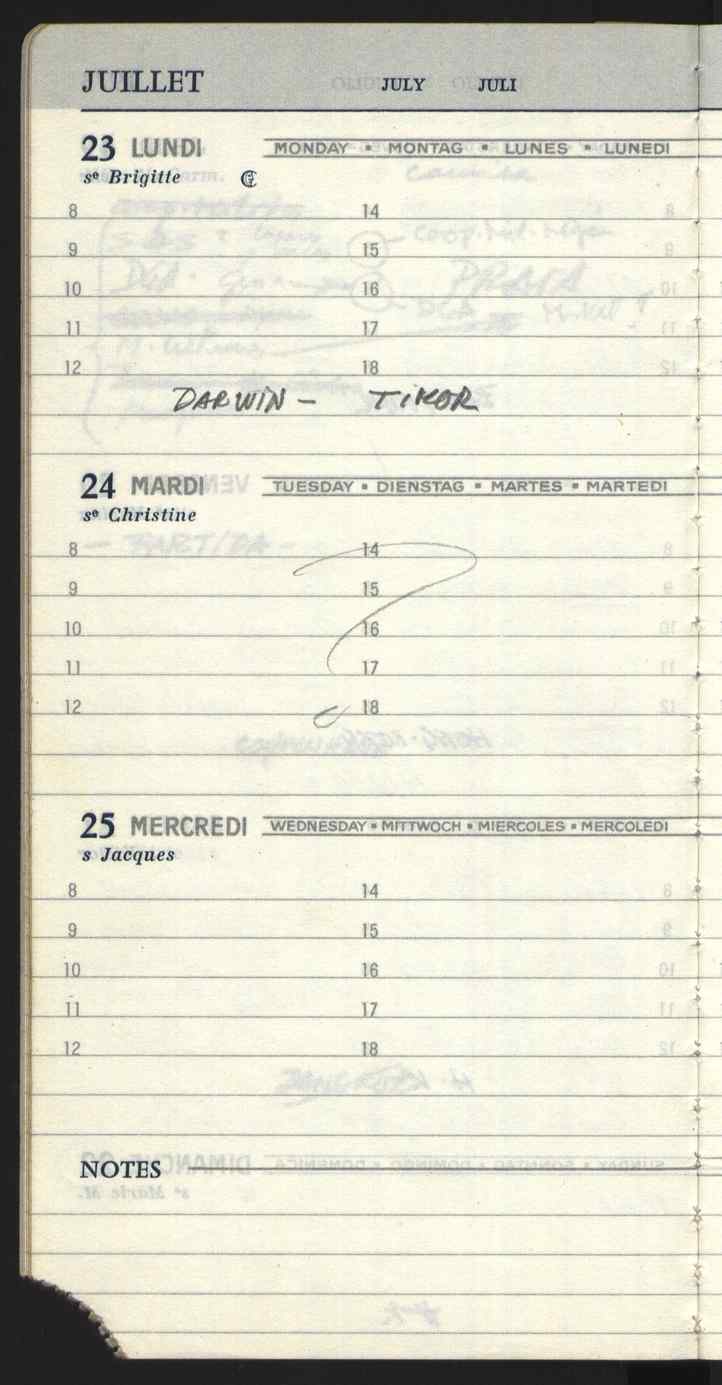 JUILLET JULY JULI
23 LUNDI MONDAY • MONTAG • LUNES • LUNEDI
sᵉ Brigitte
8 14
9 15
10 16
11 17
12 18
DARWIN – TIMOR
24 MARDI TUESDAY • DIENSTAG • MARTES • MARTEDI
sᵉ Christine
8 14
9 15
10 16
11 17
12 18
?
25 MERCREDI WEDNESDAY • MITTWOCH • MIERCOLES • MERCOLEDI
s Jacques
8 14
9 15
10 16
11 17
12 18
NOTES